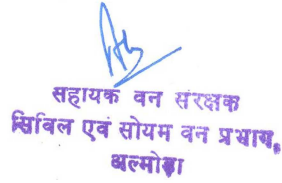 सहायक वन संरक्षक
सिविल एवं सोयम वन प्रभाग,
अल्मोड़ा